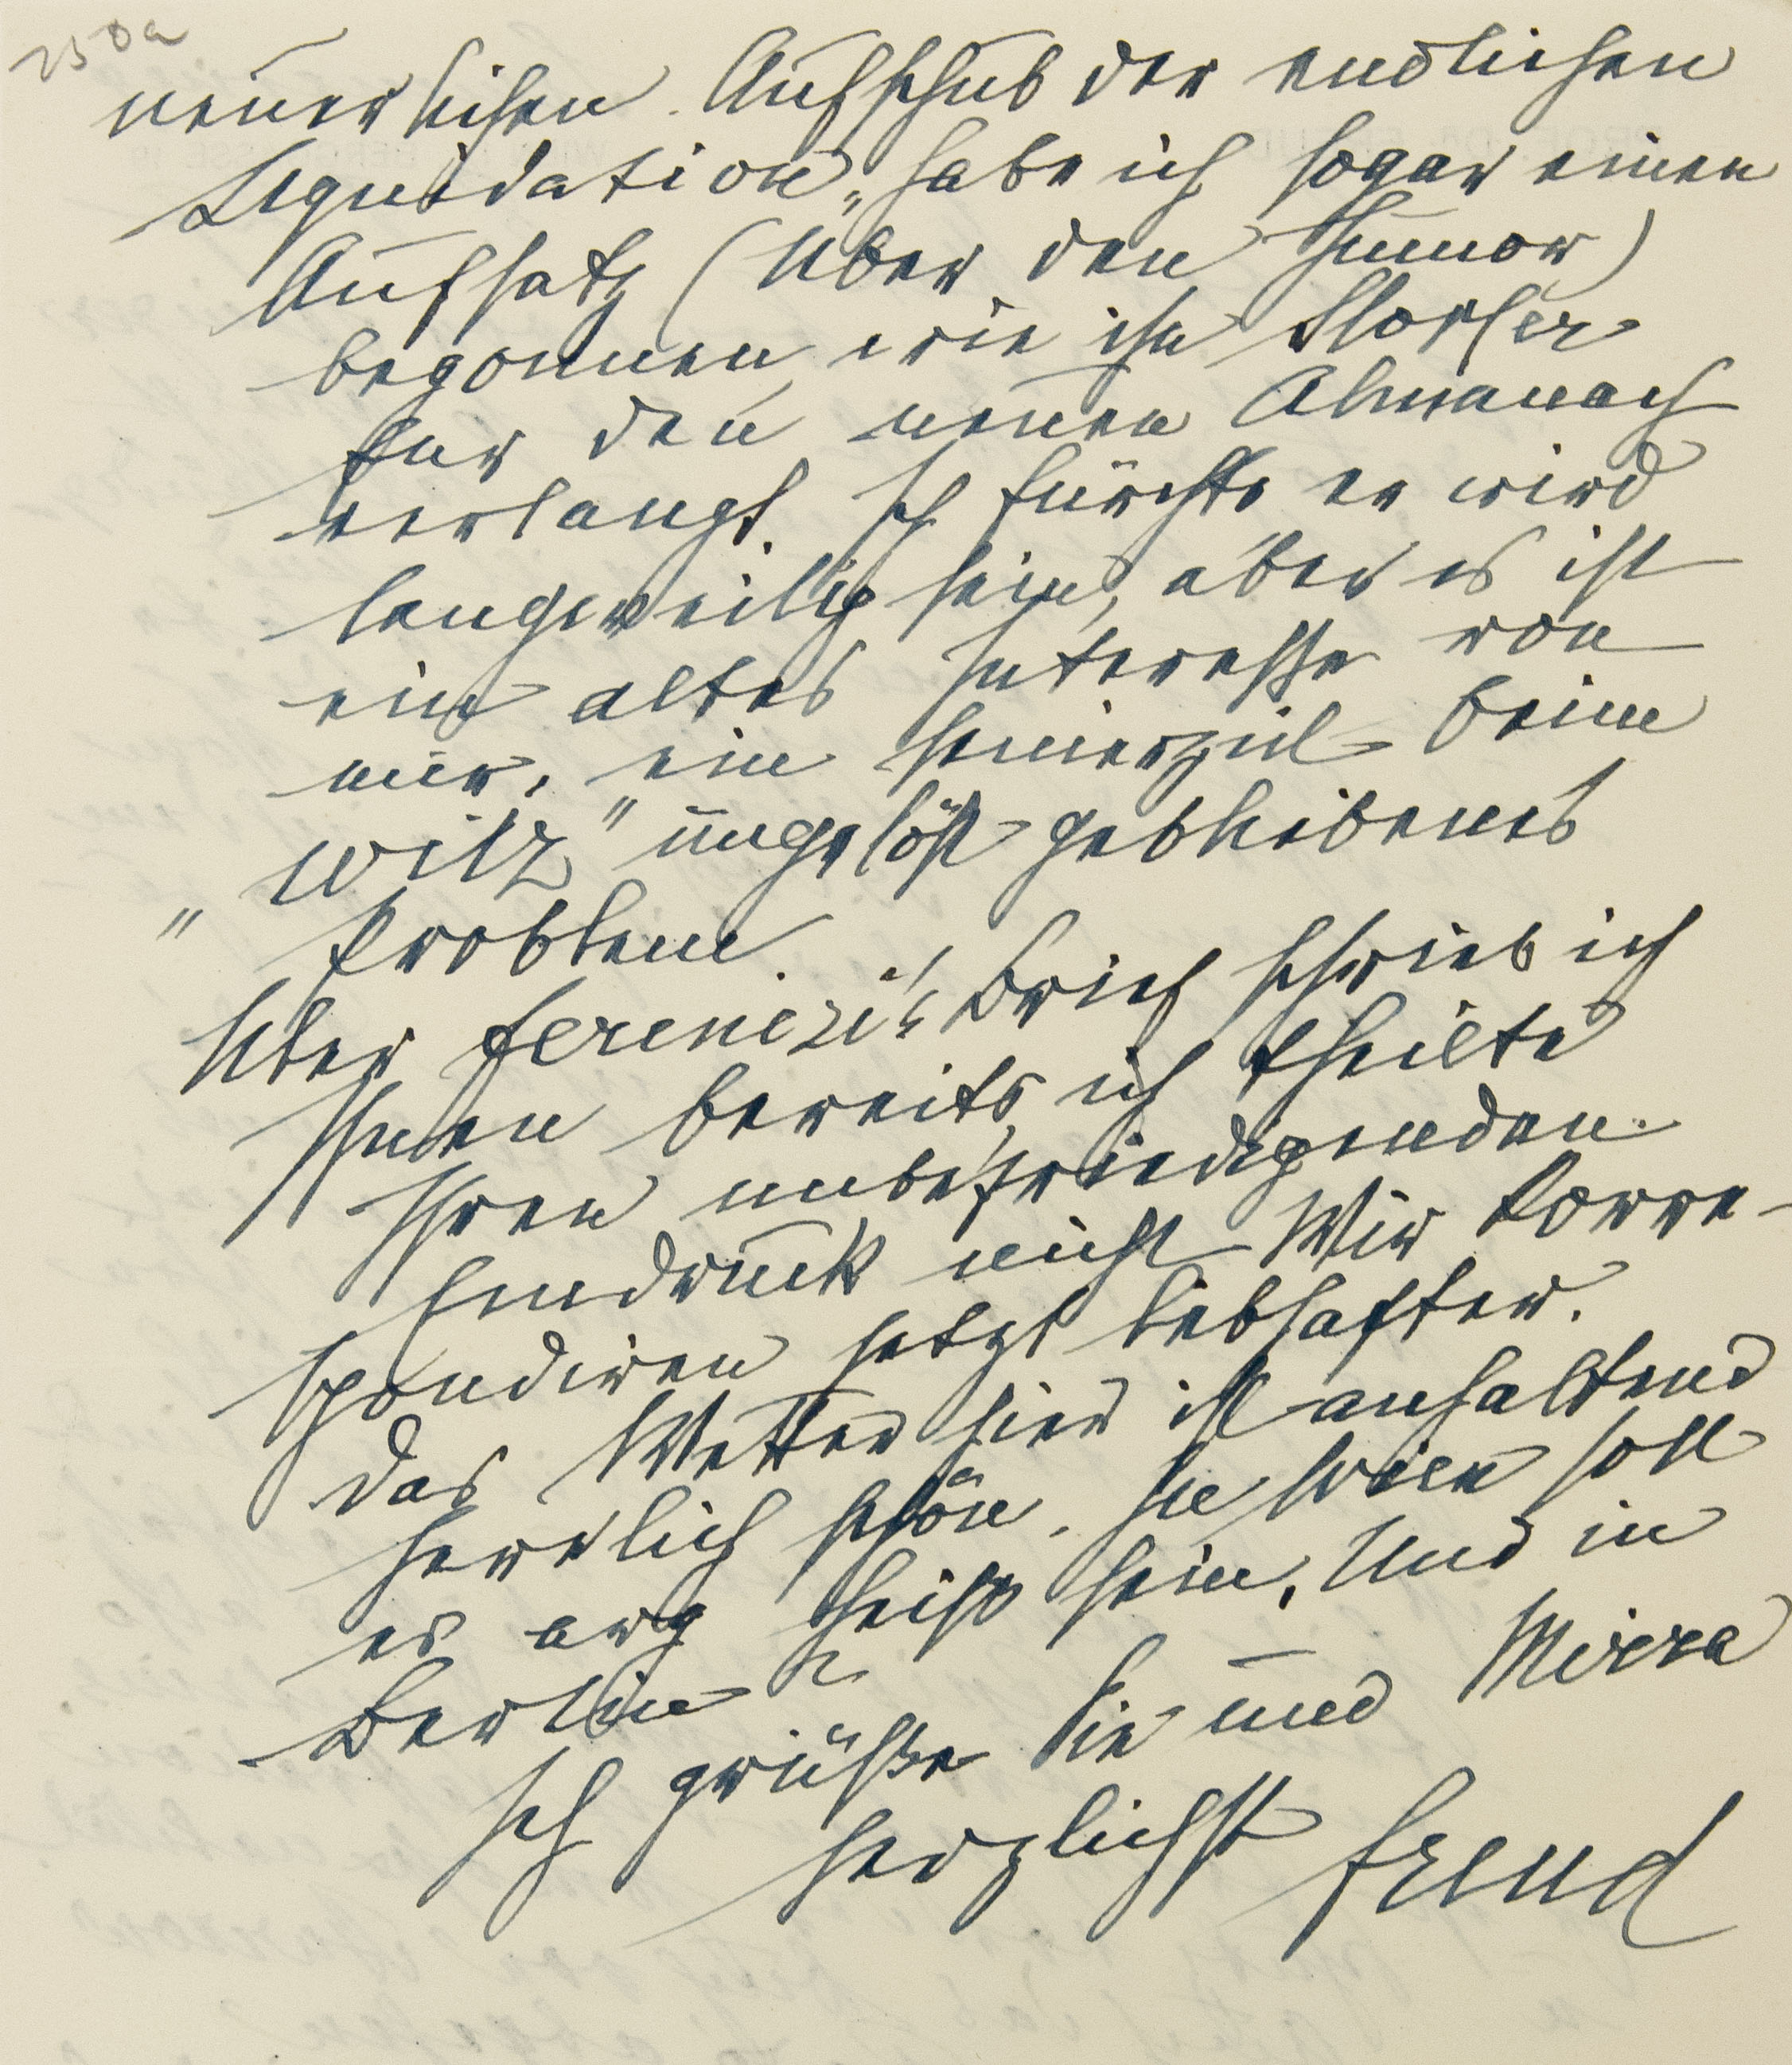 250a
neuerlichen Aufschub der endlichen
Liquidation" habe ich sogar einen
Aufsatz (Über den Humor)
begonnen, wie ihn Storfer
für den neuen Almanach
verlangt. Ich fürchte er wird
langweilig sein, aber es ist
ein altes Interesse von
mir, ein seinerzeit beim
"Witz" ungelöst gebliebenes
Problem.
Über Ferenczi's Brief schrieb ich
Ihnen bereits, ich theilte
Ihren unbefriedigenden
Eindruck nicht. Wir korre-
spondiren jetzt lebhafter.
Das Wetter hier ist anhaltend
herrlich schön. In Wien soll
es arg heiß sein. Und in
Berlin?
Ich grüße Sie und Mirra
herzlichst Freud